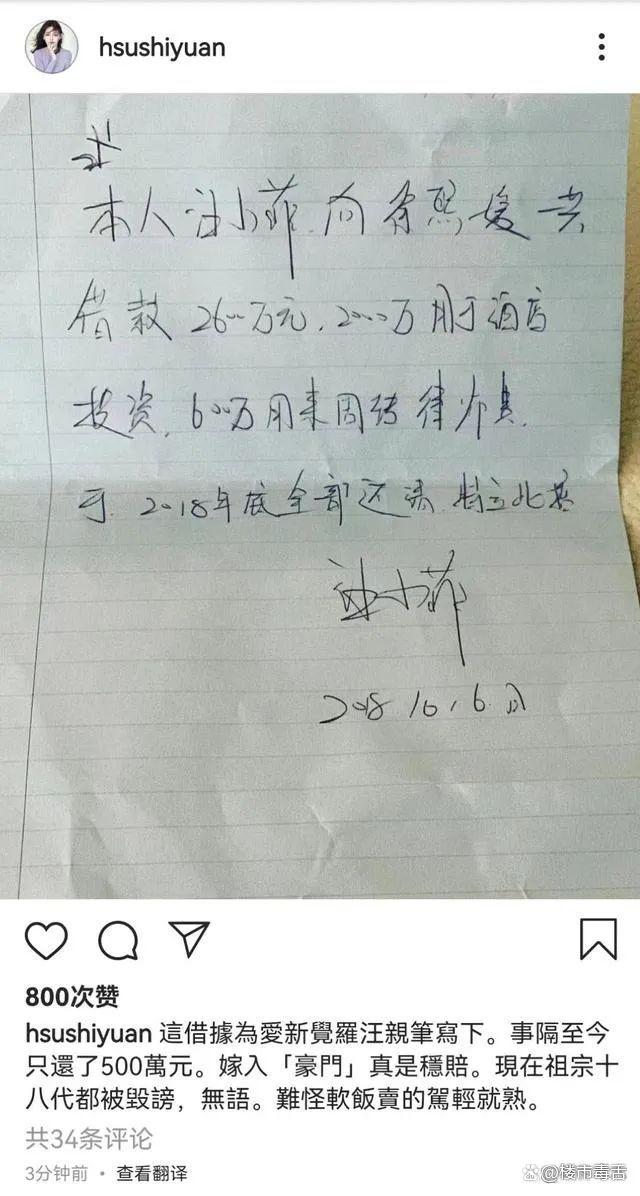 hsushiyuan
本人汪小菲向徐熙媛共
借款2600万元，2000万用于酒店
投资，600万用来周转律师费，
于2018年底全部还清，特立此基
汪小菲
2018.10.6日
800次赞
hsushiyuan 這借據為愛新覺羅汪親筆寫下。事隔至今
只還了500萬元。嫁入「豪門」真是穩賠。現在祖宗十
八代都被毀謗，無語。難怪軟飯賣的駕輕就熟。
共34条评论
3分钟前 · 查看翻译
@楼市毒舌